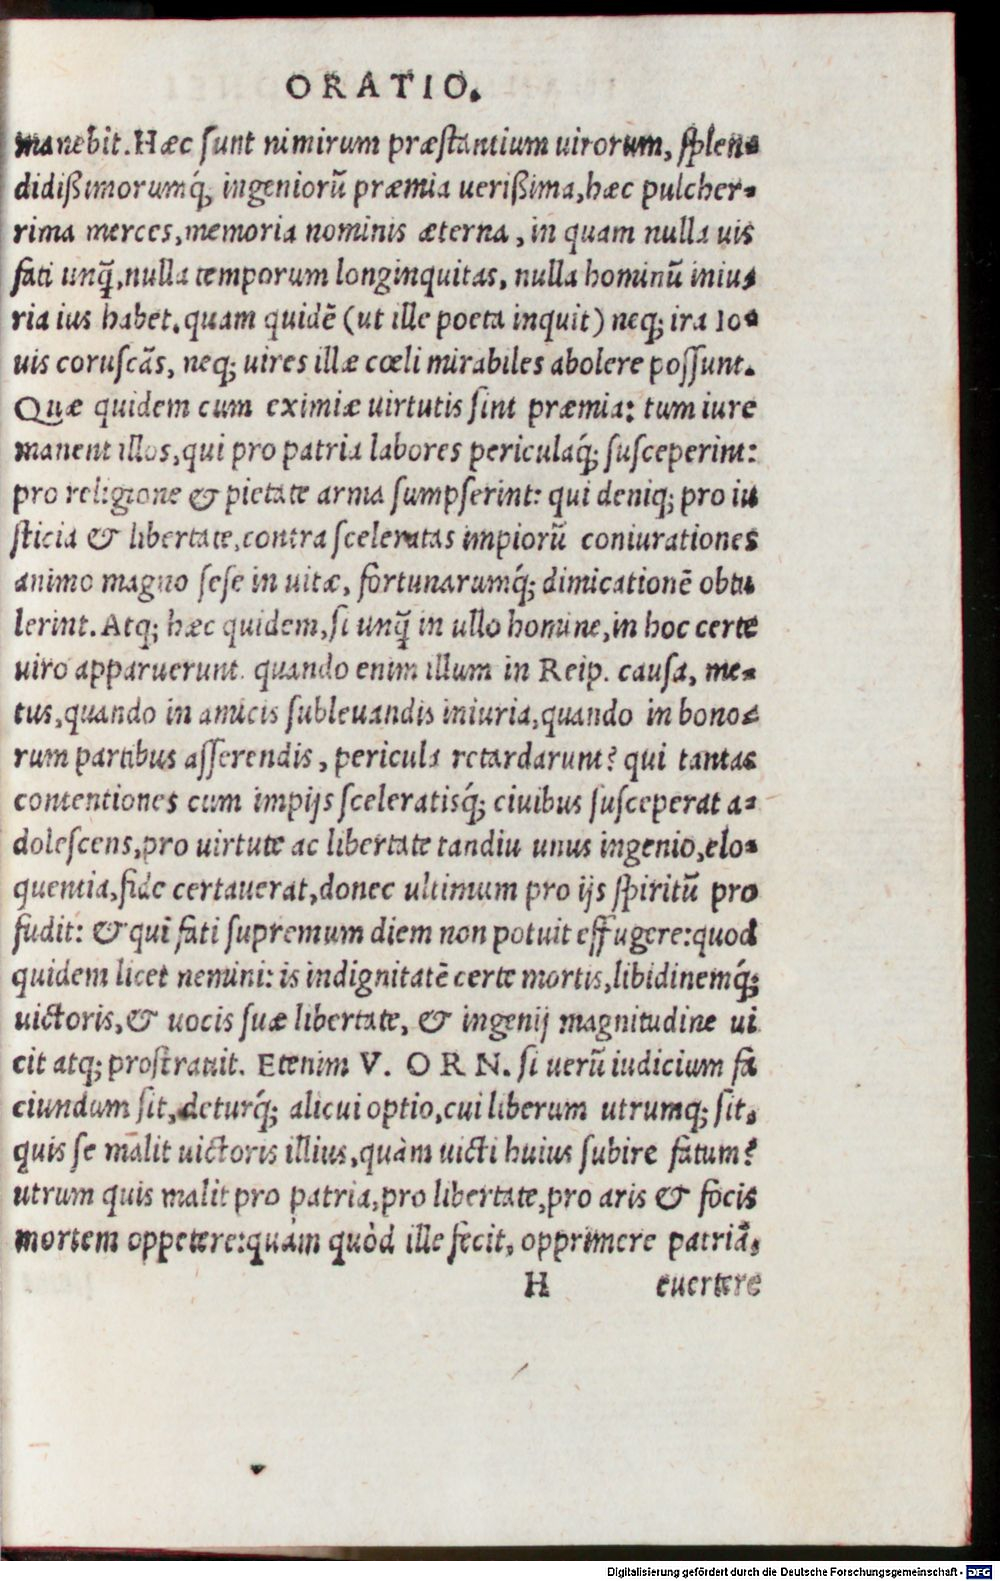 ORATIO.
manebit. Hæc sunt nimirum præstantium uirorum, splen-
didißimorumq́; ingeniorũ præmia uerißima, hæc pulcher-
rima merces, memoria nominis æterna, in quam nulla uis
fati unq̃, nulla temporum longinquitas, nulla hominũ iniu-
ria ius habet. quam quidẽ (ut ille poeta inquit) neq; ira Io-
uis coruscãs, neq; uires illæ cœli mirabiles abolere possunt.
Quæ quidem cum eximiæ uirtutis sint præmia: tum iure
manent illos, qui pro patria labores periculaq́; susceperint:
pro religione & pietate arma sumpserint: qui deniq; pro iu
sticia & libertate, contra sceleratas impiorũ coniurationes
animo magno sese in uitæ, fortunarumq́; dimicationẽ obtu
lerint. Atq; hæc quidem, si unq̃ in ullo homine, in hoc certe
uiro apparuerunt. quando enim illum in Reip. causa, me-
tus, quando in amicis subleuandis iniuria, quando in bono-
rum partibus asserendis, pericula retardarunt? qui tantas
contentiones cum impijs sceleratisq́; ciuibus susceperat a-
dolescens, pro uirtute ac libertate tandiu unus ingenio, elo-
quentia, fide certauerat, donec ultimum pro ijs spiritũ pro
fudit: & qui fati supremum diem non potuit effugere: quod
quidem licet nemini: is indignitatẽ certe mortis, libidinemq́;
uictoris, & uocis suæ libertate, & ingenij magnitudine ui
cit atq; prostrauit. Etenim V. ORN. si uerũ iudicium fa
ciundum sit, deturq́; alicui optio, cui liberum utrumq; sit,
quis se malit uictoris illius, quàm uicti huius subire fatum?
utrum quis malit pro patria, pro libertate, pro aris & focis
mortem oppetere: quàm quòd ille fecit, opprimere patriã,
H euertere
Digitalisierung gefördert durch die Deutsche Forschungsgemeinschaft - DFG